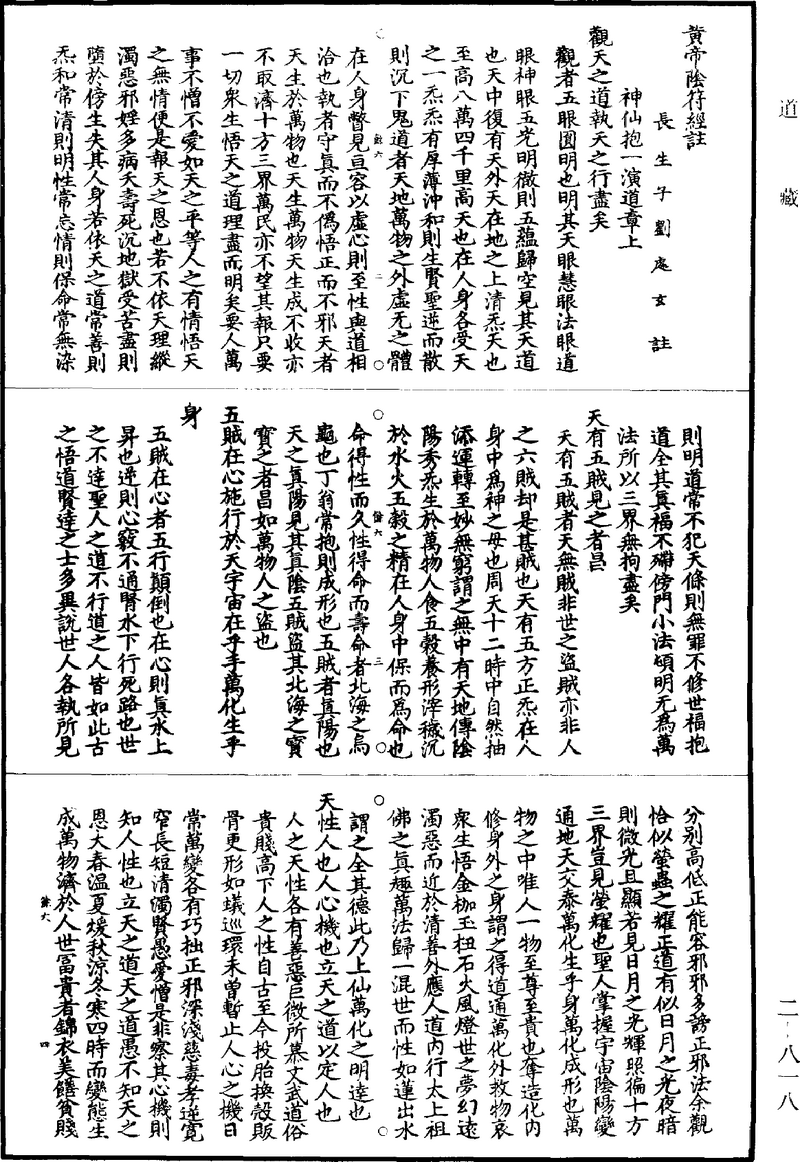 道藏
黄帝陰符經註
長生子劉處玄註
神仙抱一演道章上
觀天之道執天之行盡矣
觀者五眼圓明也明其天眼慧眼法眼道
眼神眼五光明徹則五蘊歸空見其天道
也天中復有天外天在地之上清炁天也
至高八萬四千里高天也在人身各受天
之一炁炁有厚薄沖和則生賢聖逆而散
則沉下鬼道者天地萬物之外虛无之體
在人身瞥見亘容以虛心則至性與道相
洽也執者守真而不偽悟正而不邪天者
天生於萬物也天生萬物天生成不收亦
不取濟十方三界萬民亦不望其報只要
一切衆生悟天之道理盡而明矣要人萬
事不憎不愛如天之平等人之有情悟天
之無情便是報天之恩也若不依天理縱
濁惡邪婬多病夭壽死沉地獄受苦盡則
墮於傍生失其人身若依天之道常善則
炁和常清則明性常忘情則保命常無染
餘六
二
則明道常不犯天條則無罪不修世福抱
道全其真福不殢傍門小法頌明无為萬
法所以三界無拘盡矣
天有五賊見之者昌
天有五賊者天無賊非世之盜賊亦非人
之六賊却是甚賊也天有五方正炁在人
身中為神之母也周天十二時中自然抽
添運轉至妙無窮謂之無中有天地傳陰
陽秀炁生於萬物人食五穀養形滓穢沉
於水火五穀之精在人身中保而為命也
命得性而久性得命而壽命者北海之烏
龜也丁翁常抱則成形也五賊者真陽也
天之真陽見其真陰五賊盜其北海之寶
寶之者昌如萬物人之盜也
五賊在心施行於天宇宙在乎手萬化生乎
身
五賊在心者五行顛倒也在心則真水上
昇也逆則心竅不通腎水下行死路也世
之不達聖人之道不行道之人皆如此古
之悟道賢達之士多異説世人各執所見
餘六
三
分别高低正能容邪邪多謗正邪法余觀
恰似螢蟲之耀正道有似日月之光夜暗
則微光且顯若見日月之光輝照徧十方
三界豈見螢耀也聖人掌握宇宙陰陽變
通地天交泰萬化生乎身萬化成形也萬
物之中唯人一物至尊至貴也奪造化内
修身外之身謂之得道通萬化外救物哀
衆生悟金枷玉杻石火風燈世之夢幻遠
濁惡而近於清善外應人道内行太上祖
佛之真趣萬法歸一混世而性如蓮出水
謂之全其德此乃上仙萬化之明達也
天性人也人心機也立天之道以定人也
人之天性各有善惡巨微所慕文武道俗
貴賤高下人之性自古至今投胎換殼販
骨更形如蟻巡環未曾暫止人心之機日
常萬變各有巧拙正邪深淺慈毒孝逆寬
窄長短清濁賢愚愛憎是非察其心機則
知人性也立天之道天之道愚不知天之
恩大春温夏煖秋涼冬寒四時而變態生
成萬物濟於人世富貴者錦衣美饍貧賤
餘六
四
二-八一八